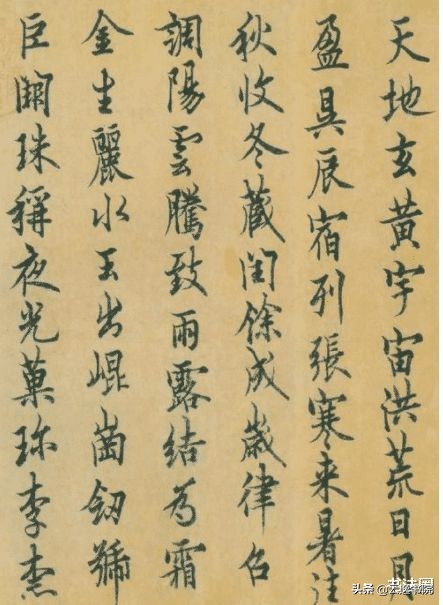 天地玄黃宇宙洪荒日月
盈昃辰宿列張寒来暑往
秋收冬藏閏餘成歲律召
調陽雲騰致雨露結為霜
金生麗水玉出崐崗劒號
巨闕珠稱夜光菓珍李柰
书法圈
头条